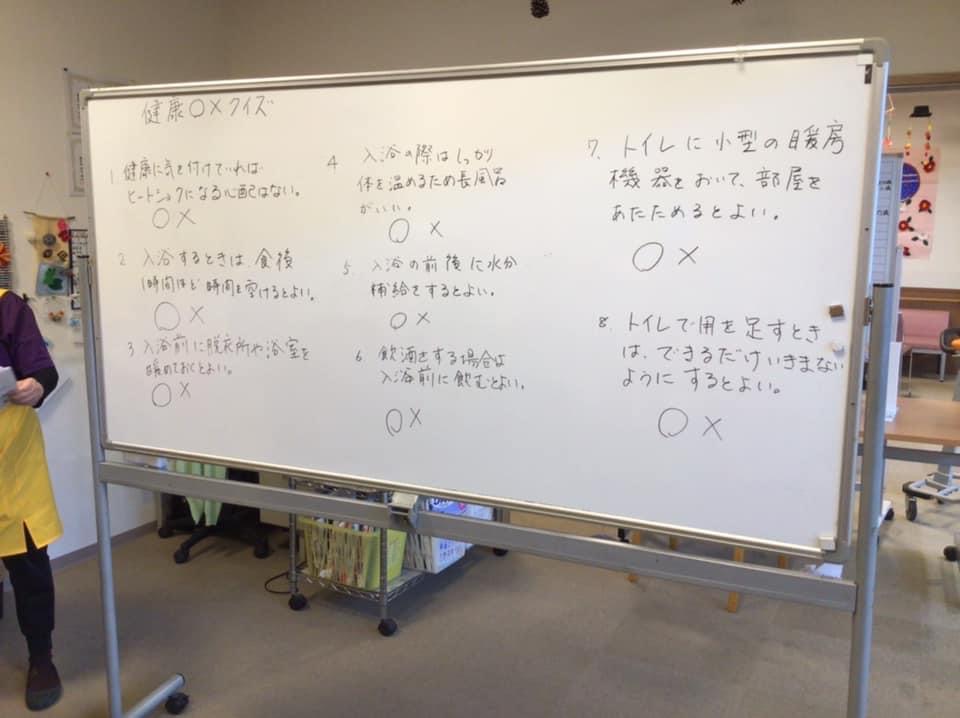 健康○×クイズ
1. 健康に気を付けていれば
ヒートショクになる心配はない。
○ ×
2 入浴するときは、食後
1時間ほど時間を空けるとよい。
○ ×
3 入浴前に脱衣所や浴室を
暖めておくとよい。
○ ×
4 入浴の際はしっかり
体を温めるため長風呂
がいい。
○ ×
5. 入浴の前後に水分
補給をするとよい。
○ ×
6. 飲酒をする場合は
入浴前に飲むとよい。
○ ×
7. トイレに小型の暖房
機器をおいて、部屋を
あたためるとよい。
○ ×
8. トイレで用を足すとき
は、できるだけいきまない
ようにするとよい。
○ ×